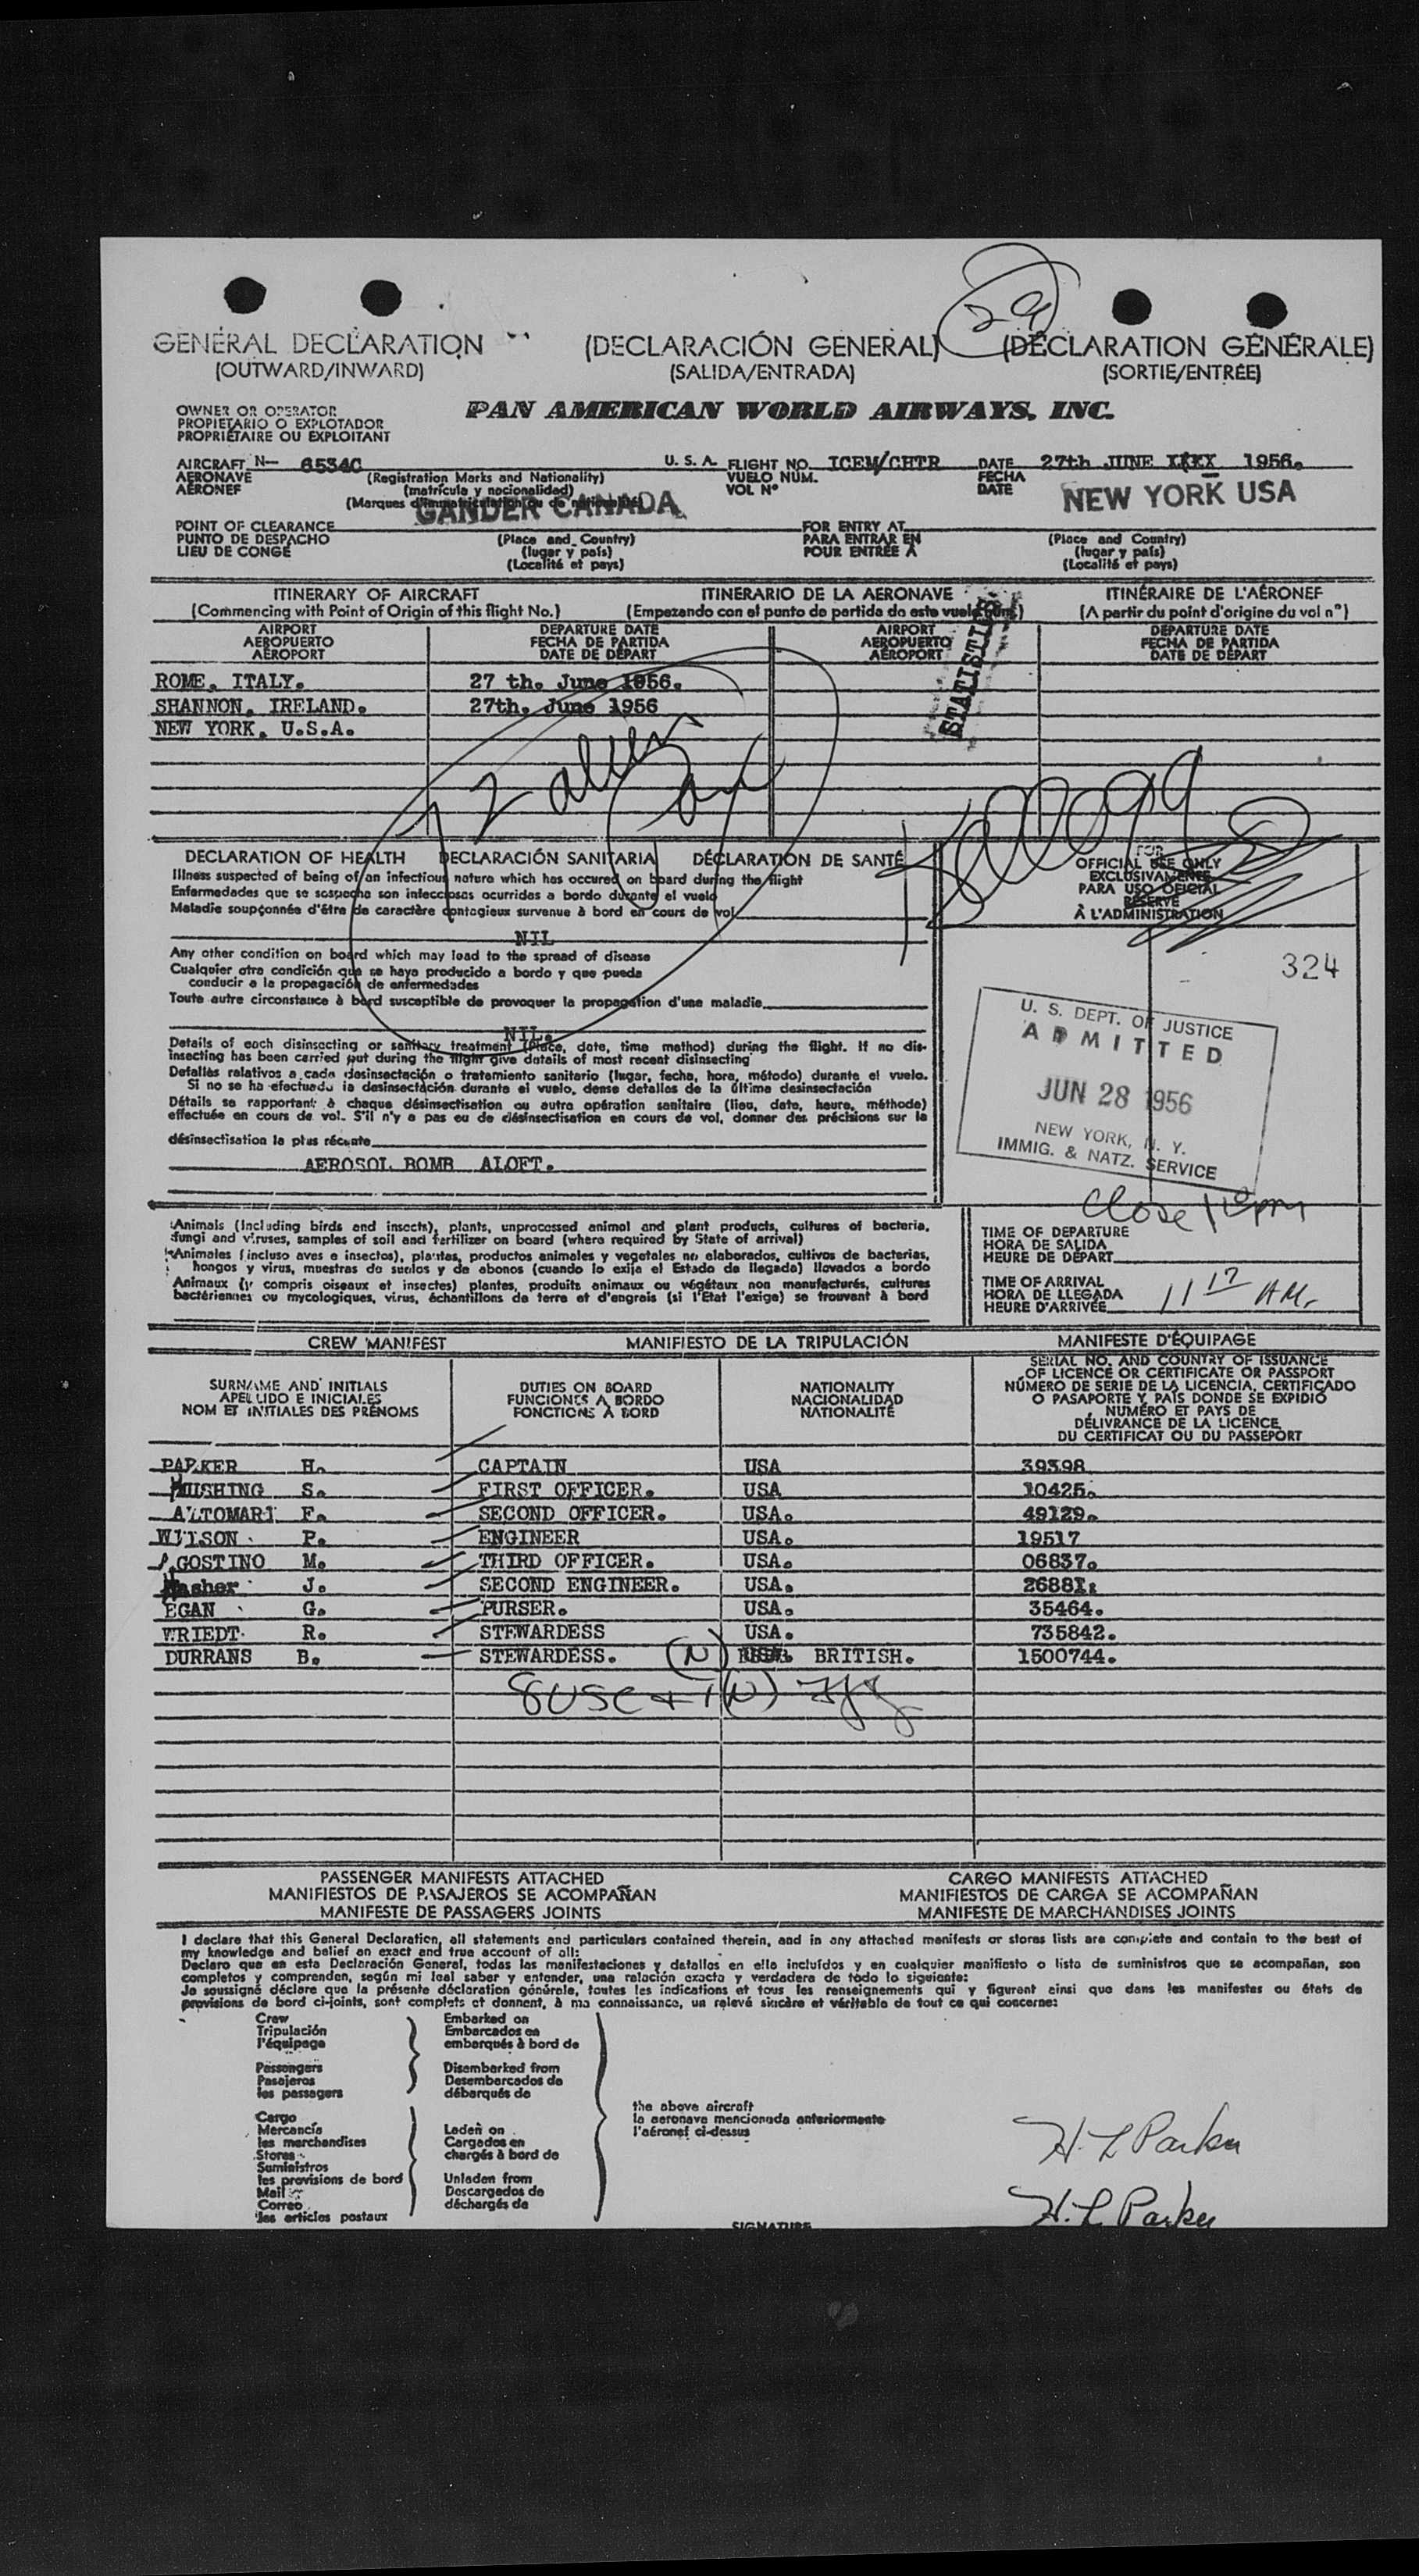 29
GENERAL DECLARATION (DECLARACIÓN GENERAL) (DÉCLARATION GÉNÉRALE)
(OUTWARD/INWARD) (SALIDA/ENTRADA) (SORTIE/ENTRÉE)
OWNER OR OPERATOR
PROPIETARIO O EXPLOTADOR
PROPRIÉTAIRE OU EXPLOITANT
PAN AMERICAN WORLD AIRWAYS, INC.
AIRCRAFT N— 6534C U. S. A. FLIGHT NO. ICEM/CHTR DATE 27th JUNE 1956.
AERONAVE (Registration Marks and Nationality) VUELO NÚM. FECHA
AÉRONEF (matrícula y nacionalidad) VOL Nº DATE
(Marques d'immatriculation ou de nationalité)
GANDER CANADA NEW YORK USA
POINT OF CLEARANCE FOR ENTRY AT
PUNTO DE DESPACHO (Place and Country) PARA ENTRAR EN (Place and Country)
LIEU DE CONGÉ (lugar y país) POUR ENTRÉE À (lugar y país)
(Localité et pays) (Localité et pays)
ITINERARY OF AIRCRAFT ITINERARIO DE LA AERONAVE ITINÉRAIRE DE L'AÉRONEF
(Commencing with Point of Origin of this flight No.) (Empezando con el punto de partida de este vuelo núm.) (A partir du point d'origine du vol nº)
AIRPORT DEPARTURE DATE AIRPORT DEPARTURE DATE
AEROPUERTO FECHA DE PARTIDA AEROPUERTO FECHA DE PARTIDA
AÉROPORT DATE DE DÉPART AÉROPORT DATE DE DÉPART
STATISTICS
ROME, ITALY. 27 th. June 1956.
SHANNON, IRELAND. 27th. June 1956
NEW YORK, U.S.A.
DECLARATION OF HEALTH DECLARACIÓN SANITARIA DÉCLARATION DE SANTÉ
Illness suspected of being of an infectious nature which has occured on board during the flight
Enfermedades que se sospecha son infecciosas ocurridas a bordo durante el vuelo
Maladie soupçonnée d'être de caractère contagieux survenue à bord en cours de vol
NIL
FOR
OFFICIAL USE ONLY
EXCLUSIVAMENTE
PARA USO OFICIAL
RÉSERVÉ
À L'ADMINISTRATION
Any other condition on board which may lead to the spread of disease
Cualquier otra condición que se haya producido a bordo y que pueda
conducir a la propagación de enfermedades
Toute autre circonstance à bord susceptible de provoquer la propagation d'une maladie
NIL.
324
Details of each disinsecting or sanitary treatment (Place, date, time method) during the flight. If no dis-
insecting has been carried out during the flight give details of most recent disinsecting
Detalles relativos a cada desinsectación o tratamiento sanitario (lugar, fecha, hora, método) durante el vuelo.
Si no se ha efectuado la desinsectación durante el vuelo, dense detalles de la última desinsectación
Détails se rapportant à chaque désinsectisation ou autre opération sanitaire (lieu, date, heure, méthode)
effectuée en cours de vol. S'il n'y a pas eu de désinsectisation en cours de vol, donner des précisions sur la
désinsectisation la plus récente
AEROSOL BOMB ALOFT.
U. S. DEPT. OF JUSTICE
ADMITTED
JUN 28 1956
NEW YORK, N. Y.
IMMIG. & NATZ. SERVICE
Animals (Including birds and insects), plants, unprocessed animal and plant products, cultures of bacteria,
fungi and viruses, samples of soil and fertilizer on board (where required by State of arrival)
Animales (incluso aves e insectos), plantas, productos animales y vegetales no elaborados, cultivos de bacterias,
hongos y virus, muestras de suelos y de abonos (cuando lo exija el Estado de llegada) llevados a bordo
Animaux (y compris oiseaux et insectes) plantes, produits animaux ou végétaux non manufacturés, cultures
bactériennes ou mycologiques, virus, échantillons de terre et d'engrais (si l'Etat l'exige) se trouvant à bord
Close
TIME OF DEPARTURE
HORA DE SALIDA
HEURE DE DÉPART
TIME OF ARRIVAL
HORA DE LLEGADA
HEURE D'ARRIVÉE 11 17 AM.
CREW MANIFEST MANIFIESTO DE LA TRIPULACIÓN MANIFESTE D'ÉQUIPAGE
SURNAME AND INITIALS
APELLIDO E INICIALES
NOM ET INITIALES DES PRÉNOMS
DUTIES ON BOARD
FUNCIONES A BORDO
FONCTIONS À BORD
NATIONALITY
NACIONALIDAD
NATIONALITÉ
SERIAL NO. AND COUNTRY OF ISSUANCE
OF LICENCE OR CERTIFICATE OR PASSPORT
NÚMERO DE SERIE DE LA LICENCIA, CERTIFICADO
O PASAPORTE Y PAÍS DONDE SE EXPIDIÓ
NUMÉRO ET PAYS DE
DÉLIVRANCE DE LA LICENCE,
DU CERTIFICAT OU DU PASSEPORT
PARKER H. CAPTAIN USA 39398
MUSHING S. FIRST OFFICER. USA 10425.
ALTOMARI F. SECOND OFFICER. USA. 49129.
WILSON P. ENGINEER USA. 19517
AGOSTINO M. THIRD OFFICER. USA. 06837.
Masher J. SECOND ENGINEER. USA. 26881.
EGAN G. PURSER. USA. 35464.
WRIEDT R. STEWARDESS USA. 735842.
DURRANS B. STEWARDESS. (N) BRITISH. 1500744.
8 USC + 1(N)
PASSENGER MANIFESTS ATTACHED CARGO MANIFESTS ATTACHED
MANIFIESTOS DE PASAJEROS SE ACOMPAÑAN MANIFIESTOS DE CARGA SE ACOMPAÑAN
MANIFESTE DE PASSAGERS JOINTS MANIFESTE DE MARCHANDISES JOINTS
I declare that this General Declaration, all statements and particulars contained therein, and in any attached manifests or stores lists are complete and contain to the best of
my knowledge and belief an exact and true account of all:
Declaro que en esta Declaración General, todas las manifestaciones y detalles en ella incluídos y en cualquier manifiesto o lista de suministros que se acompañan, son
completos y comprenden, según mi leal saber y entender, una relación exacta y verdadera de todo lo siguiente:
Je soussigné déclare que la présente déclaration générale, toutes les indications et tous les renseignements qui y figurent ainsi que dans les manifestes ou états de
provisions de bord ci-joints, sont complets et donnent, à ma connaissance, un relevé sincère et véritable de tout ce qui concerne:
Crew
Tripulación
l'équipage
Passengers
Pasajeros
les passagers
Embarked on
Embarcados en
embarqués à bord de
Disembarked from
Desembarcados de
débarqués de
Cargo
Mercancía
les marchandises
Stores
Suministros
les provisions de bord
Mail
Correo
les articles postaux
Laden on
Cargados en
chargés à bord de
Unladen from
Descargados de
déchargés de
the above aircraft
la aeronave mencionada anteriormente
l'aéronef ci-dessus
H. L Parker
H. L Parker
SIGNATURE